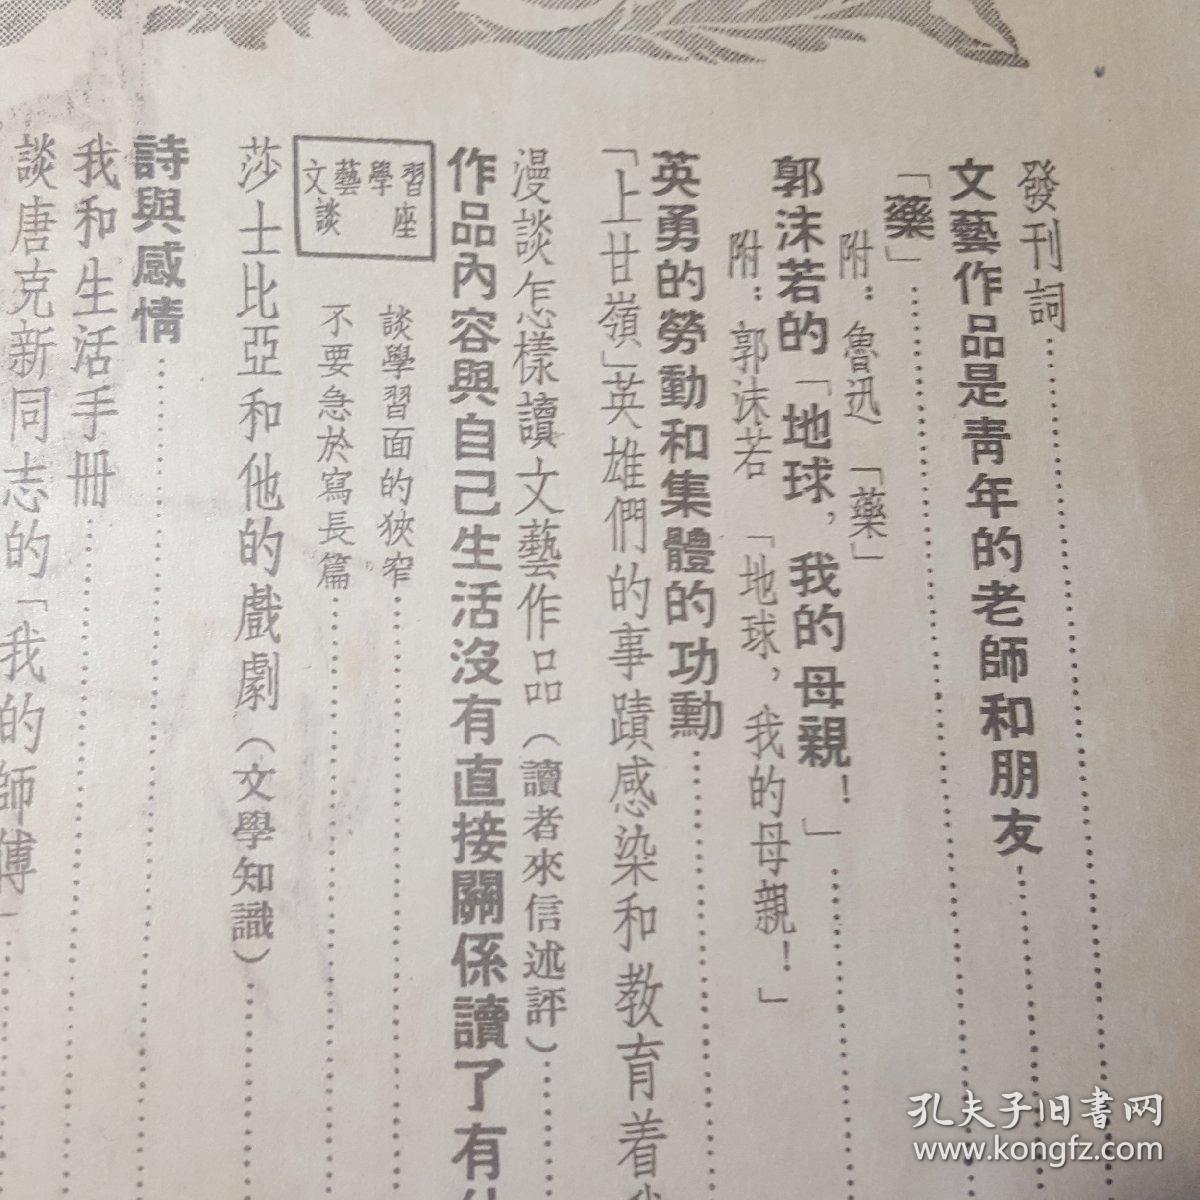 發刊詞
文藝作品是青年的老師和朋友
「藥」
附：魯迅「藥」
郭沫若的「地球，我的母親！」
附：郭沫若「地球，我的母親！」
英勇的勞動和集體的功勳
「上甘嶺」英雄們的事蹟感染和教育着我
漫談怎樣讀文藝作品（讀者來信述評）
作品內容與自己生活沒有直接關係讀了有什
學習座
文藝談
談學習面的狹窄
不要急於寫長篇
莎士比亞和他的戲劇（文學知識）
詩與感情
我和生活手冊
談唐克新同志的「我的師傅」
孔夫子旧书网
www.kongfz.com